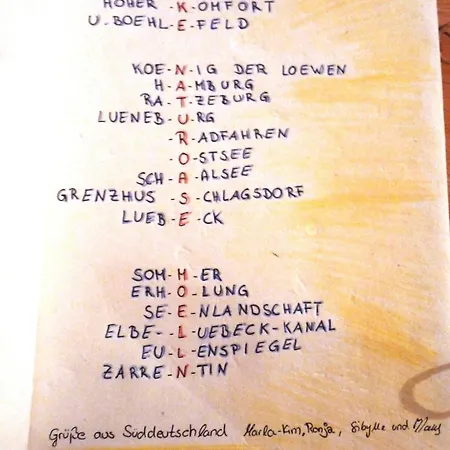 HOHER -K-OMFORT
U.BOEHL-E-FELD
KOE-N-IG DER LOEWEN
H-A-MBURG
RA-T-ZEBURG
LUENEB-U-RG
-R-ADFAHREN
-O-STSEE
SCH-A-ALSEE
GRENZHUS -S-CHLAGSDORF
LUEB-E-CK
SOM-M-ER
ERH-O-LUNG
SE-E-NLANDSCHAFT
ELBE--L-UEBECK-KANAL
EU-L-ENSPIEGEL
ZARRE-N-TIN
Grüße aus Süddeutschland Marla-Kim, Ronja, Sibylle und